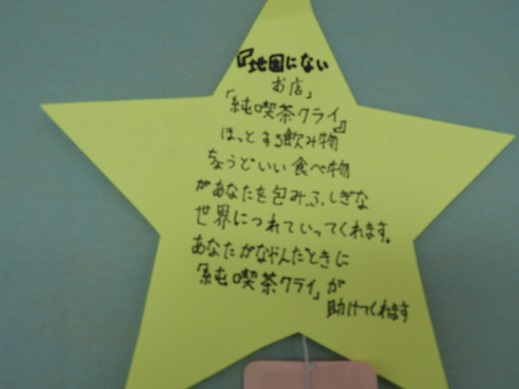 『地図にない
お店」
「純喫茶クライ』
ほっとする飲み物
ちょうどいい食べ物
があなたを包みふしぎな
世界につれていってくれます。
あなたがなやんだときに
「純喫茶クライ」が
助けてくれます